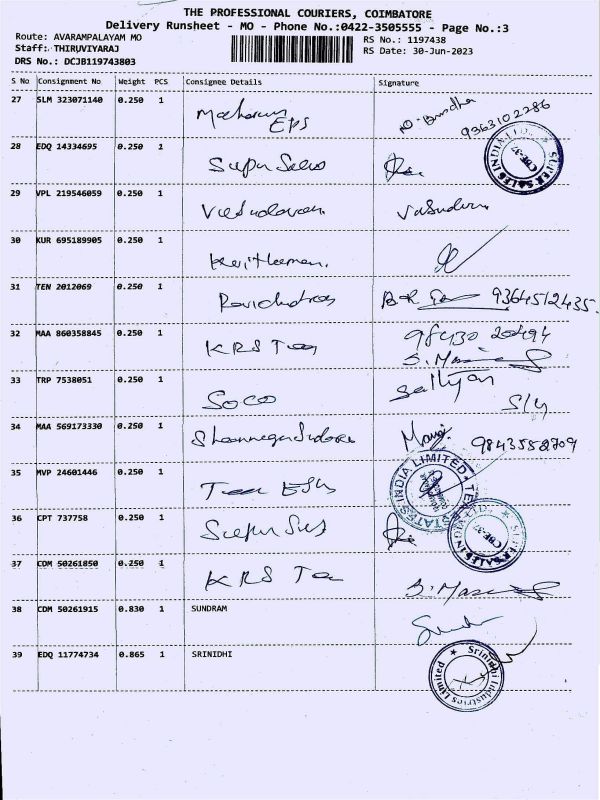 THE PROFESSIONAL COURIERS, COIMBATORE
Delivery Runsheet - MO - Phone No.:0422-3505555 - Page No.:3
Route: AVARAMPALAYAM MO
RS No.: 1197438
Staff: THIRUVIYARAJ
RS Date: 30-Jun-2023
DRS No.: DCJB119743803
S No Consignment No Weight PCS Consignee Details Signature
27 SLM 323071140 0.250 1 EPS 9363102286
28 EDQ 14334695 0.250 1 SUPER SALES INDIA LTD. CBE-37
29 VPL 219546059 0.250 1
30 KUR 695189905 0.250 1
31 TEN 2012069 0.250 1 9364512435
32 MAA 860358845 0.250 1 KRS Tea 98430 20494
33 TRP 7538051 0.250 1 SOCO
34 MAA 569173330 0.250 1 9843558209
35 MVP 24601446 0.250 1 ESTATES INDIA LIMITED
36 CPT 737758 0.250 1 SUPER SALES INDIA LTD. CBE-37
37 CDM 50261850 0.250 1 KRS Tea
38 CDM 50261915 0.830 1 SUNDRAM
39 EDQ 11774734 0.865 1 SRINIDHI Srinidhi Industries Limited